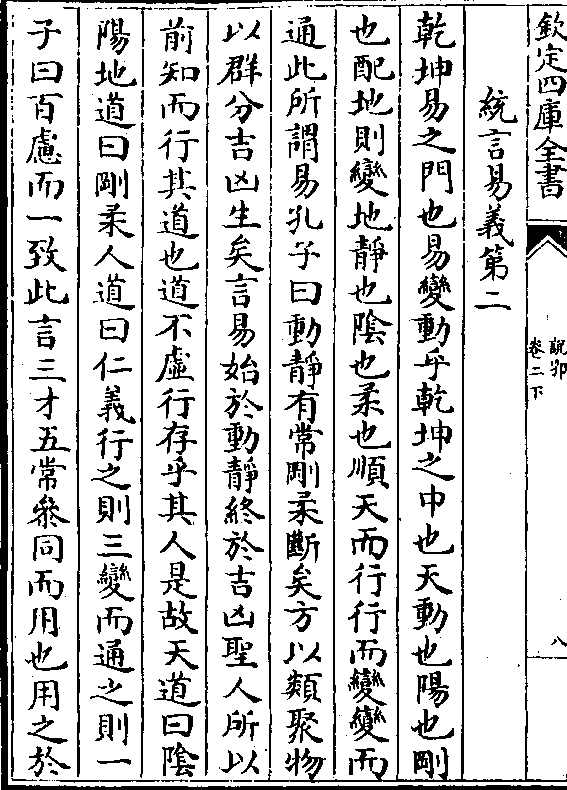 欽定四庫全書
說郛
卷二下
八
統言易義第二
乾坤易之門也易變動乎乾坤之中也天動也陽也剛
也配地則變地靜也陰也柔也順天而行行而變變而
通此所謂易孔子曰動靜有常剛柔斷矣方以類聚物
以群分吉凶生矣言易始於動靜終於吉凶聖人所以
前知而行其道也道不虛行存乎其人是故天道曰陰
陽地道曰剛柔人道曰仁義行之則三變而通之則一
子曰百慮而一致此言三才五常叅同而用也用之於